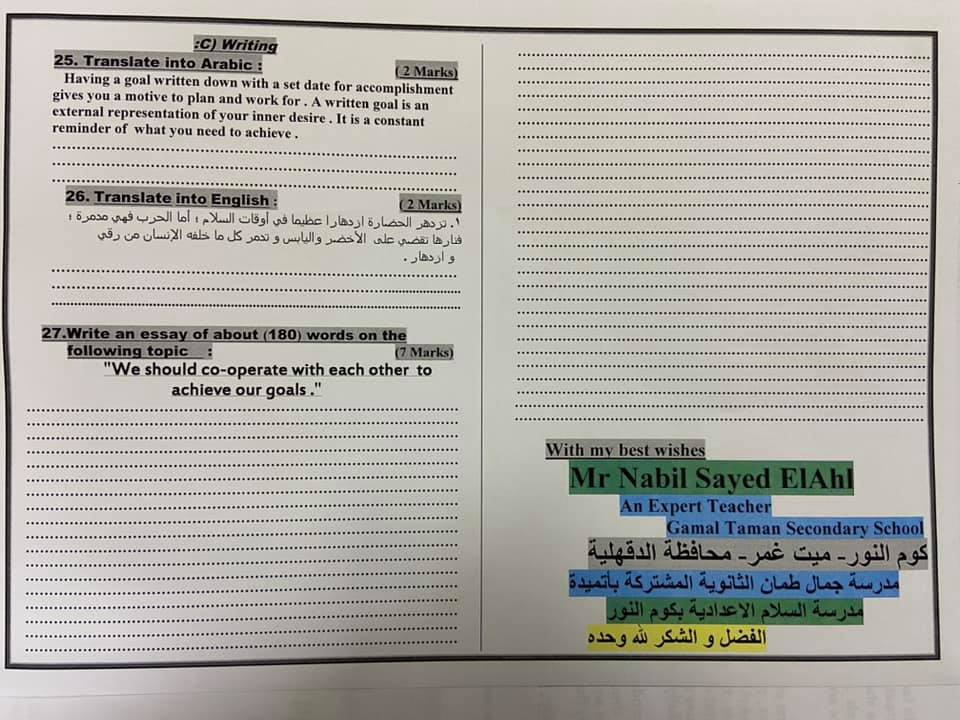 :C) Writing
25. Translate into Arabic :
( 2 Marks)
Having a goal written down with a set date for accomplishment
gives you a motive to plan and work for . A written goal is an
external representation of your inner desire . It is a constant
reminder of what you need to achieve .
26. Translate into English :
( 2 Marks)
١. تزدهر الحضارة ازدهارا عظيما في أوقات السلام ؛ أما الحرب فهي مدمرة ؛
فنارها تقضي على الأخضر واليابس و تدمر كل ما خلفه الإنسان من رقي
و ازدهار .
27.Write an essay of about (180) words on the
following topic :
(7 Marks)
"We should co-operate with each other to
achieve our goals ."
With my best wishes
Mr Nabil Sayed ElAhl
An Expert Teacher
Gamal Taman Secondary School
كوم النور- ميت غمر- محافظة الدقهلية
مدرسة جمال طمان الثانوية المشتركة بأتميدة
مدرسة السلام الاعدادية بكوم النور
الفضل و الشكر لله وحده